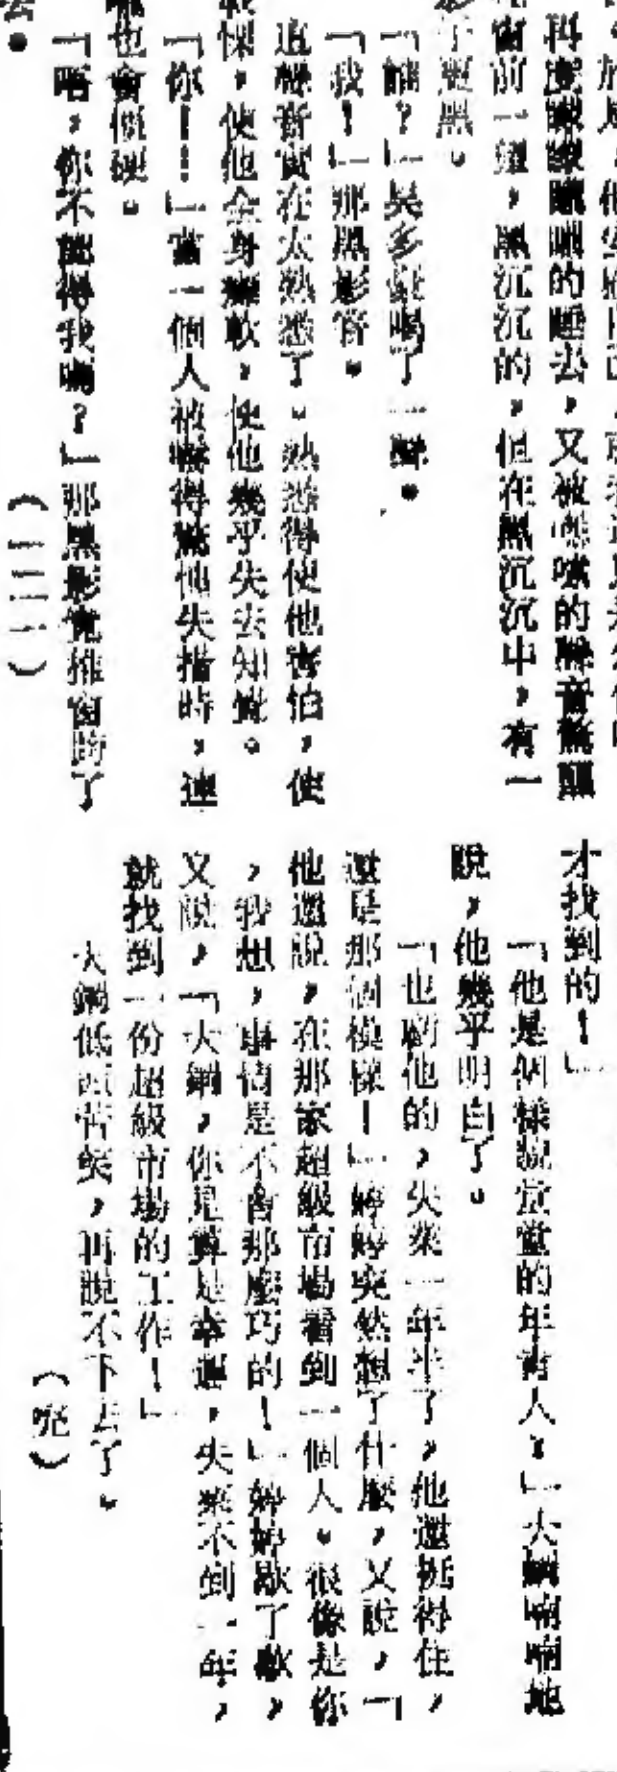 再度矇矇矓矓的睡去，又被嗦嗦的聲音驚醒
窗前一望，黑沉沉的，但在黑沉沉中，有一
影子更黑。
「誰？」吳多 喝了一聲。
「我！」那黑影答。
這聲音實在太熟悉了。熟悉得使他害怕，使
他全身癱軟，使他幾乎失去知覺。
「你！！」當一個人被嚇得驚惶失措時，連
也會僵硬。
「唔，你不認得我嗎？」那黑影竟推窗跨了
去。
（二二）
才找到的！」
「他是個樣貌堂堂的年青人？」大鋼喃喃地
說，他幾乎明白了。
「也虧他的，失業一年半了，他還挺得住，
還是那個模樣！」婷婷突然想了什麼，又說，「
他還說，在那家超級市場看到一個人。很像是你
，我想，事情是不會那麼巧的！」婷婷歇了歇，
又說，「大鋼，你是算是幸運，失業不到一年，
就找到一份超級市場的工作！」
大鋼低頭苦笑，再說不下去了。
（完）